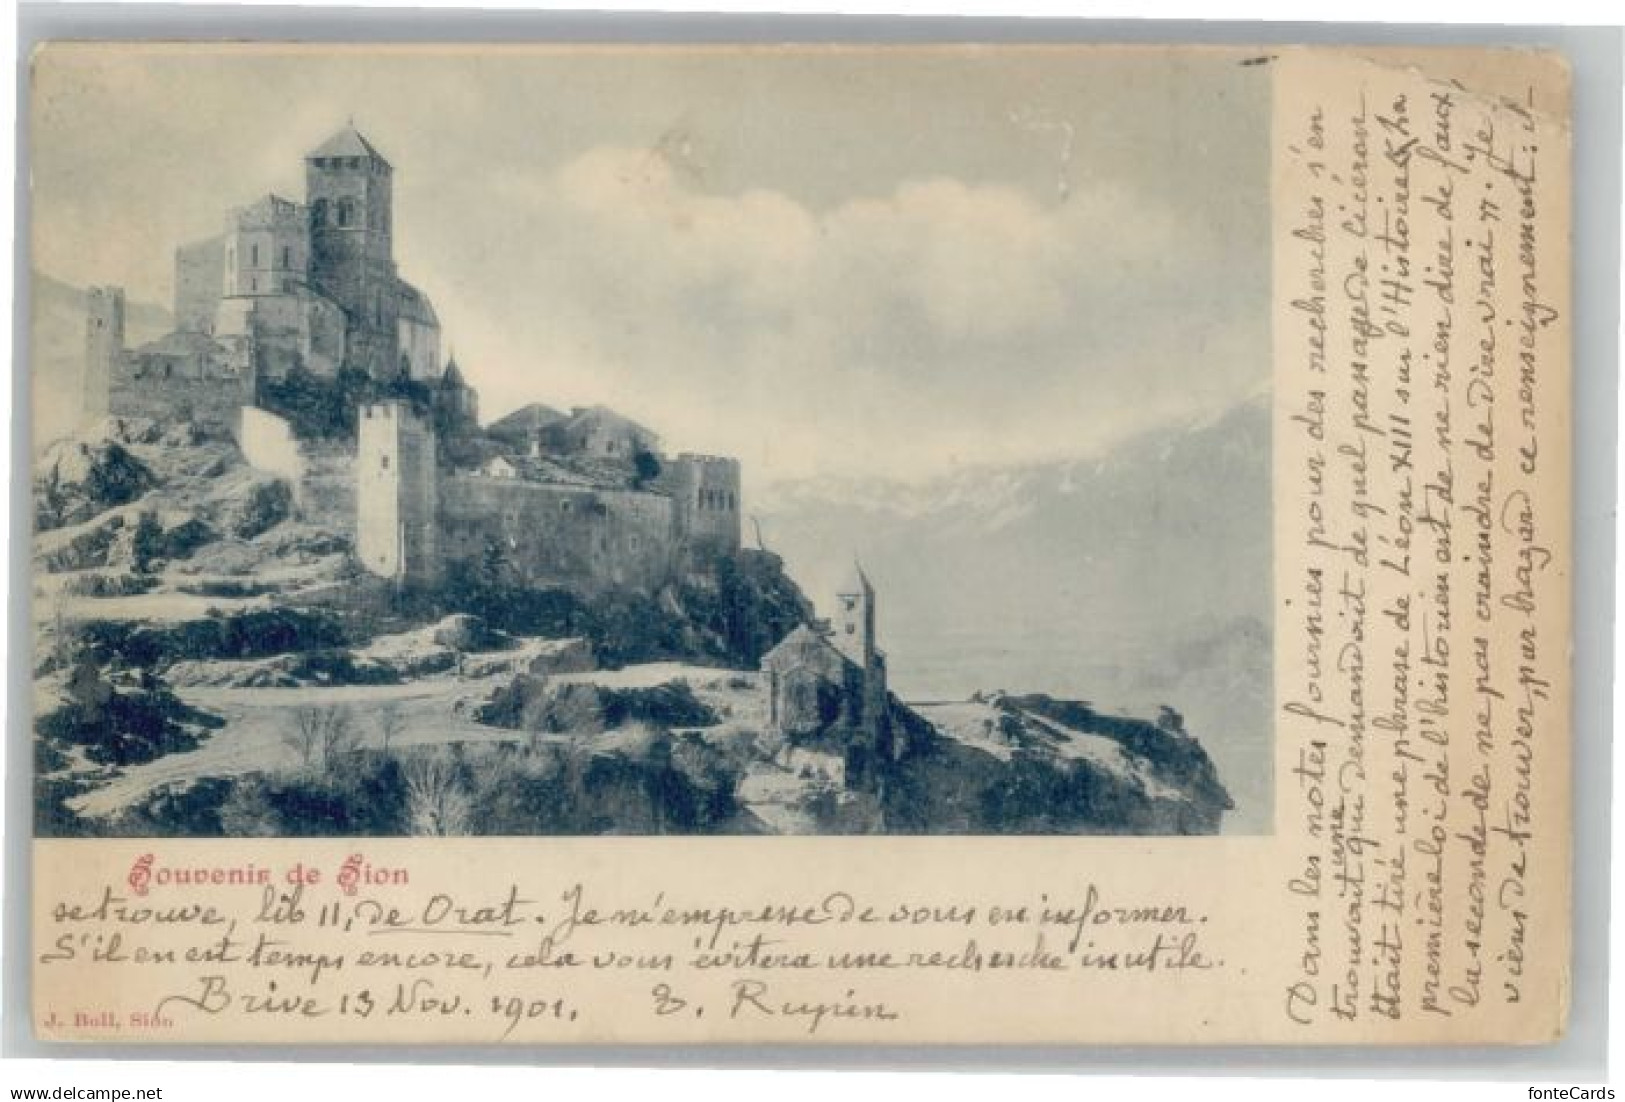 Dans les notes fournies pour des recherches s'en
trouvait une qui demandait de quel passage de Cicéron
était tiré une phrase de Léon XIII sur l'Histoire « La
première loi de l'historien est de ne rien dire de faux,
la seconde de ne pas craindre de dire vrai ». Je
viens de trouver, par hazard ce renseignement: il
Souvenir de Sion
se trouve, lib II, de Orat. Je m'empresse de vous en informer.
S'il en est temps encore, cela vous évitera une recherche inutile.
Brive 13 Nov. 1901. E. Rupin
J. Boll, Sion
fonteCards